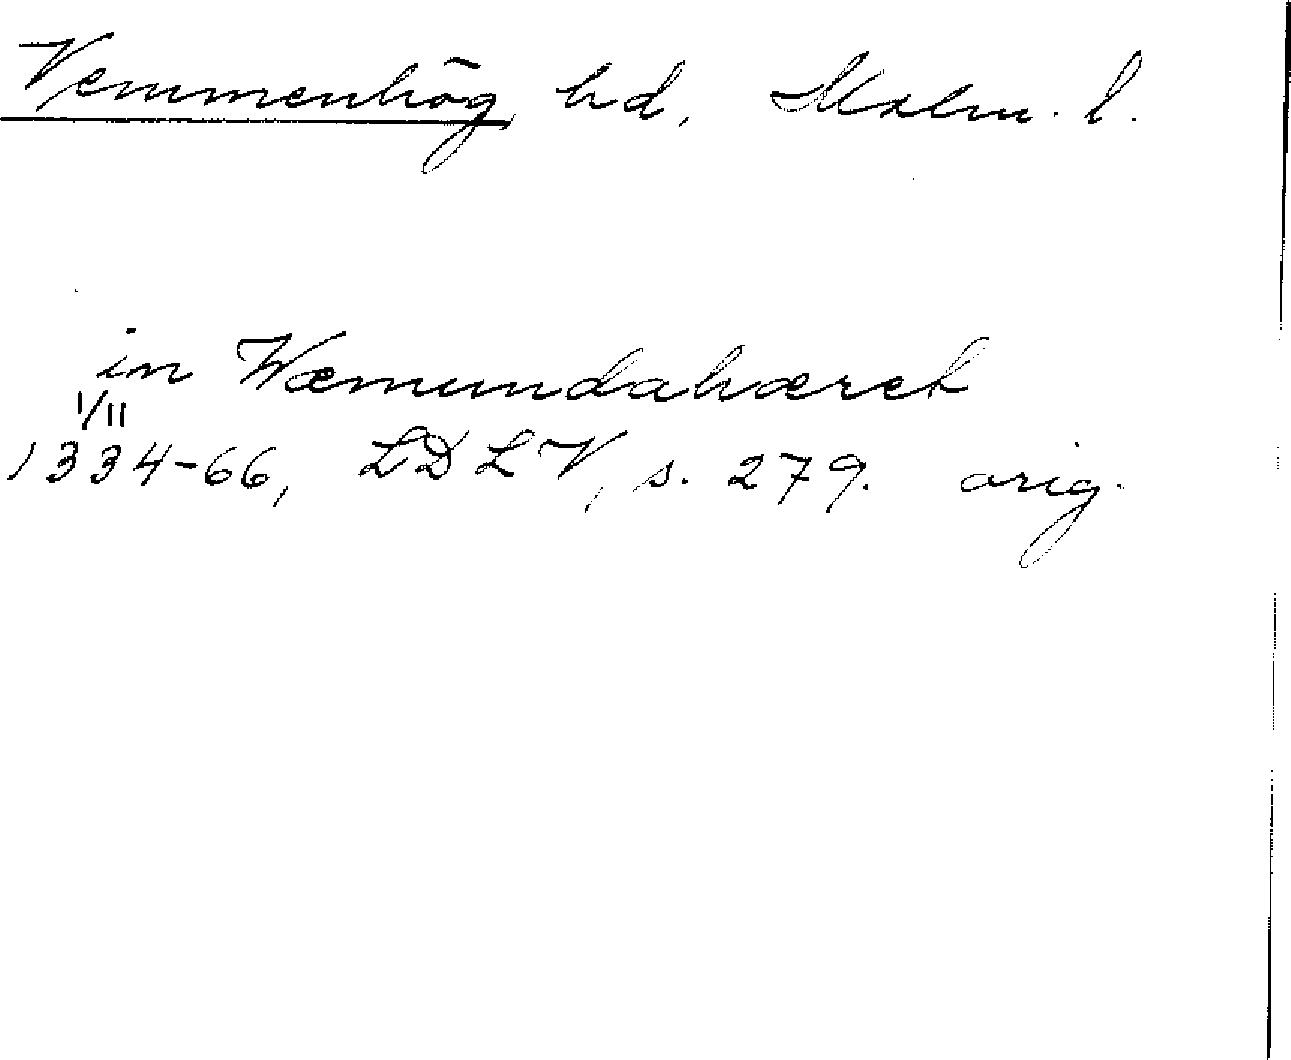 Vemmenhög hd, Malm. l.
in Wæmundahæret
1/11
1334-66, LDLV, s. 279. orig.